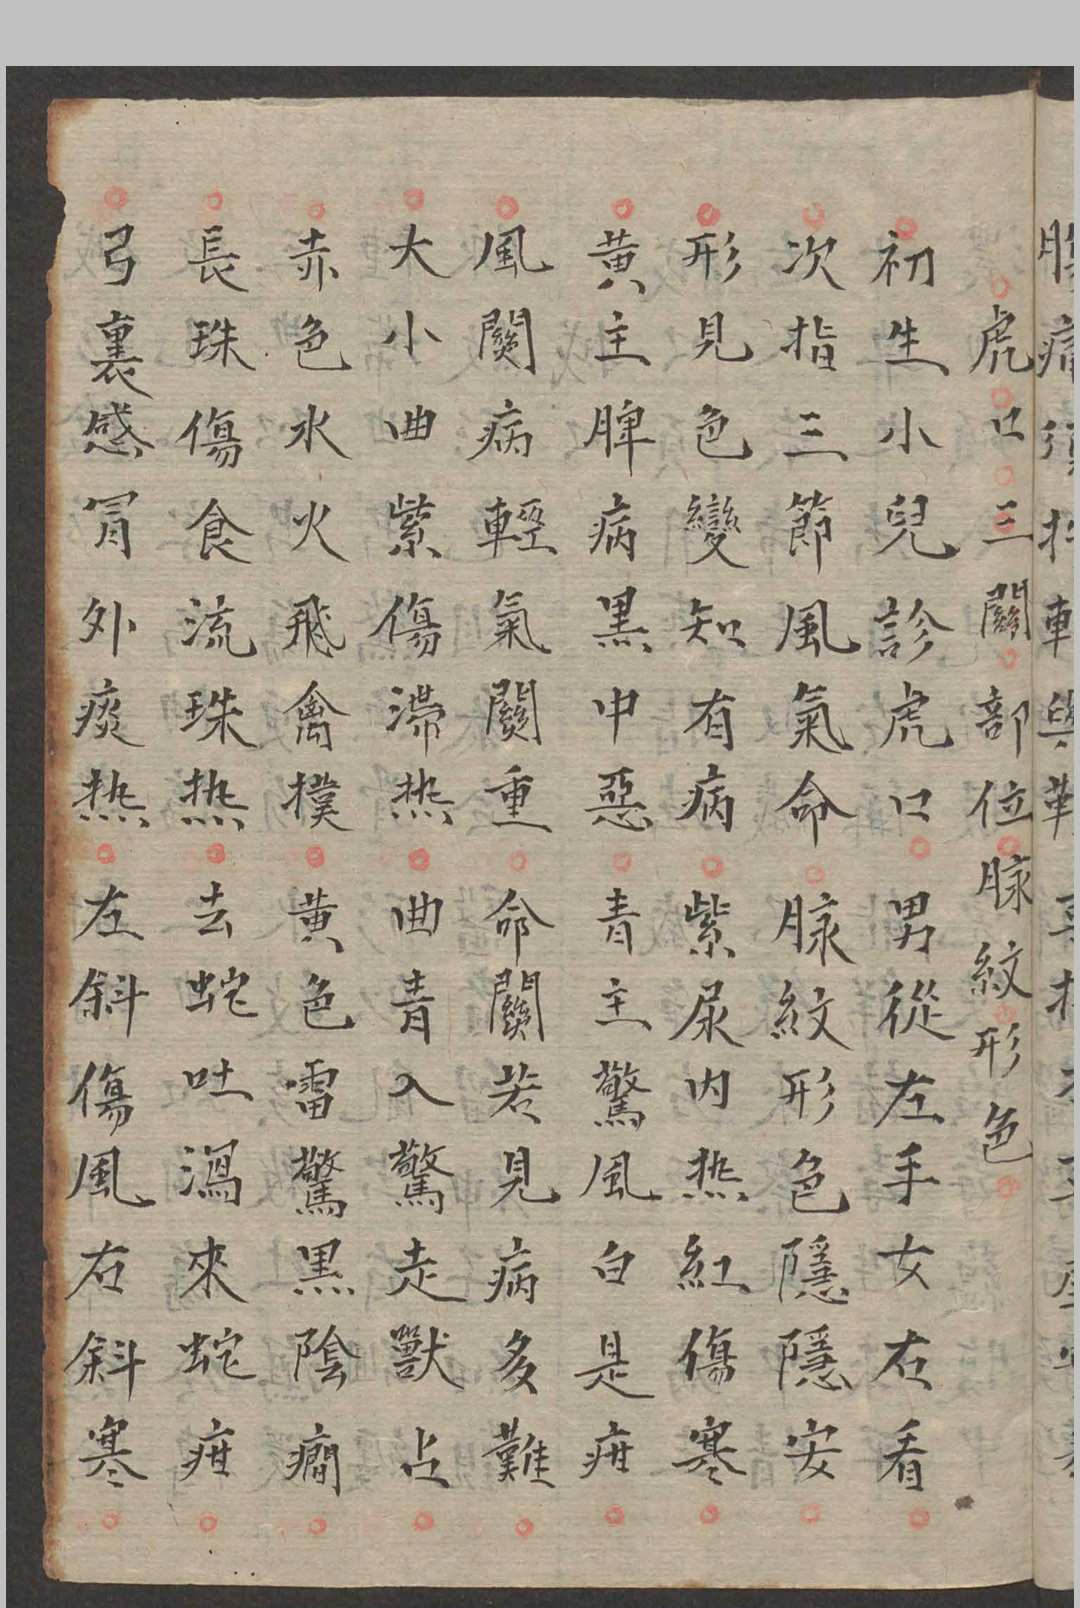 虎口三關部位脉紋形色
初生小兒診虎口男從左手女右看
次指三節風氣命脉紋形色隱隱安
形見色變知有病紫尿内热紅傷寒
黄主脾病黒中惡青主驚風白是疳
風関病輕氣関重命關若見病多難
大小曲紫傷滯热曲青入驚走獸占
赤色水火飛禽撲黄色雷驚黒陰癇
長珠傷食流珠热去蛇吐瀉來蛇疳
弓裏感冐外痰热左斜傷風右斜寒